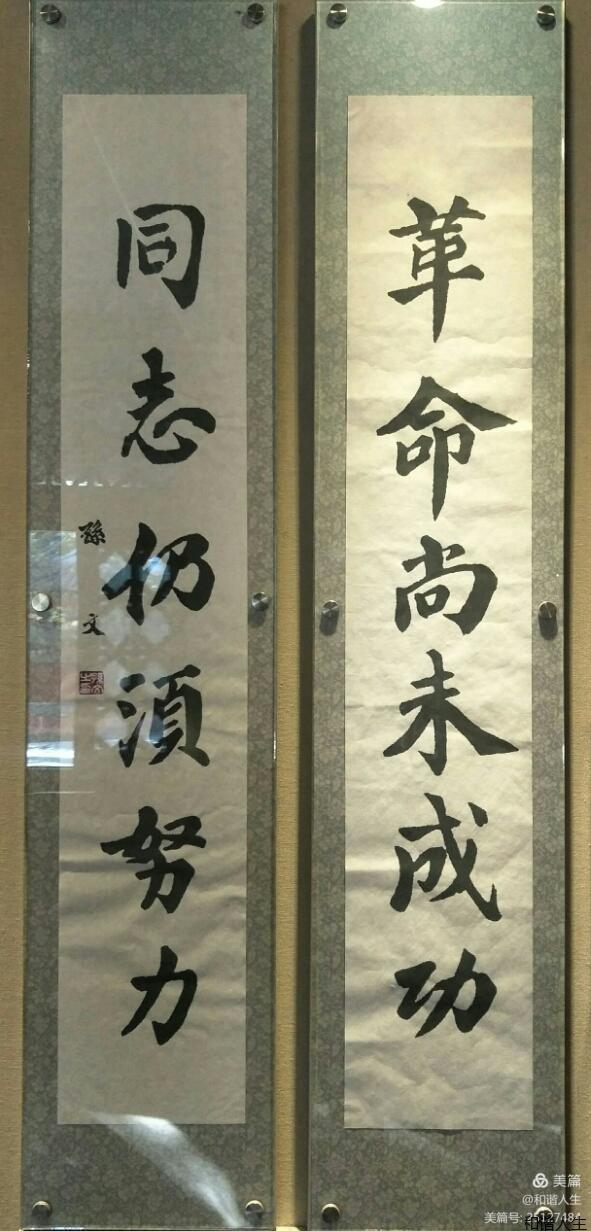 革命尚未成功
同志仍湏努力
孫文
美篇
@和谐人生
美篇号: 25127484
和谐人生